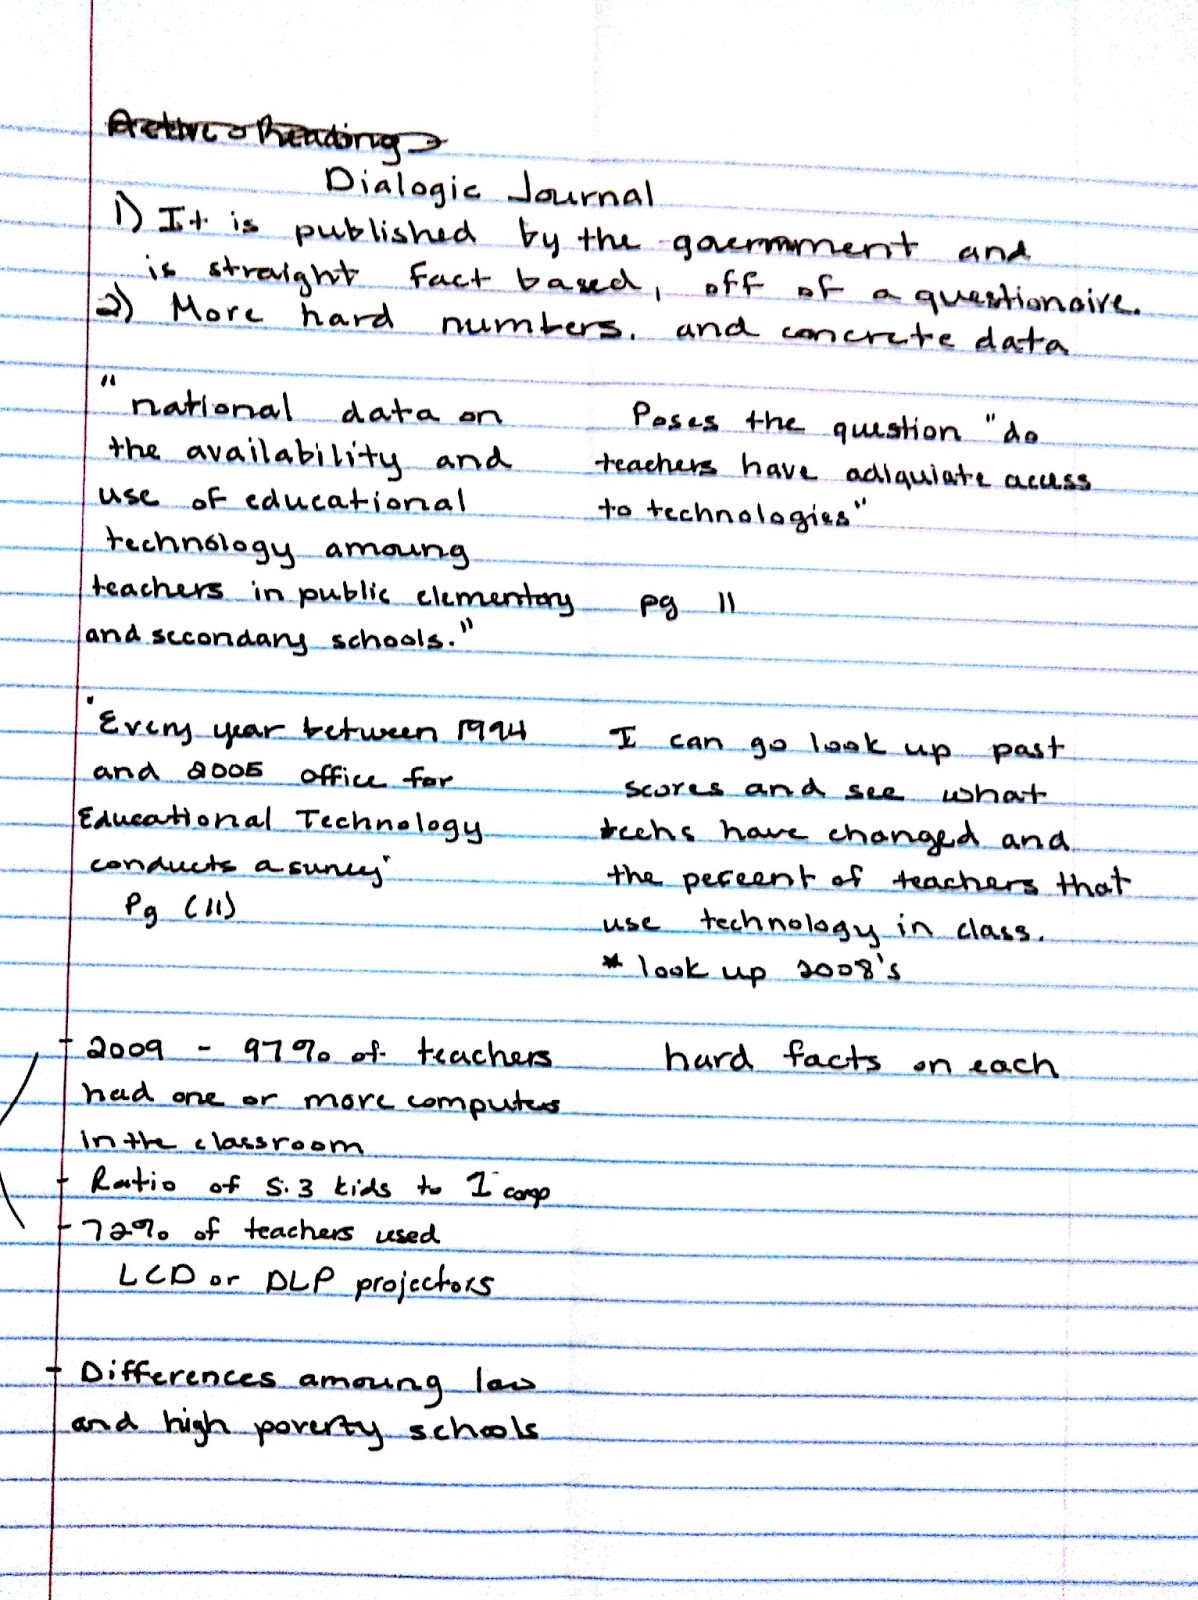 Active Reading
Dialogic Journal
1) It is published by the government and
is straight fact based, off of a questionaire.
2) More hard numbers. and concrete data
"national data on
the availability and
use of educational
technology amoung
teachers in public elementary
and secondary schools."
Poses the question "do
teachers have adiquiate access
to technologies"
pg 11
"Every year between 1994
and 2005 office for
Educational Technology
conducts a survey"
Pg (11)
I can go look up past
scores and see what
techs have changed and
the percent of teachers that
use technology in class.
* look up 2008's
- 2009 - 97% of teachers
had one or more computers
in the classroom
- Ratio of 5.3 kids to 1 comp
- 72% of teachers used
LCD or DLP projectors
hard facts on each
- Differences amoung low
and high poverty schools